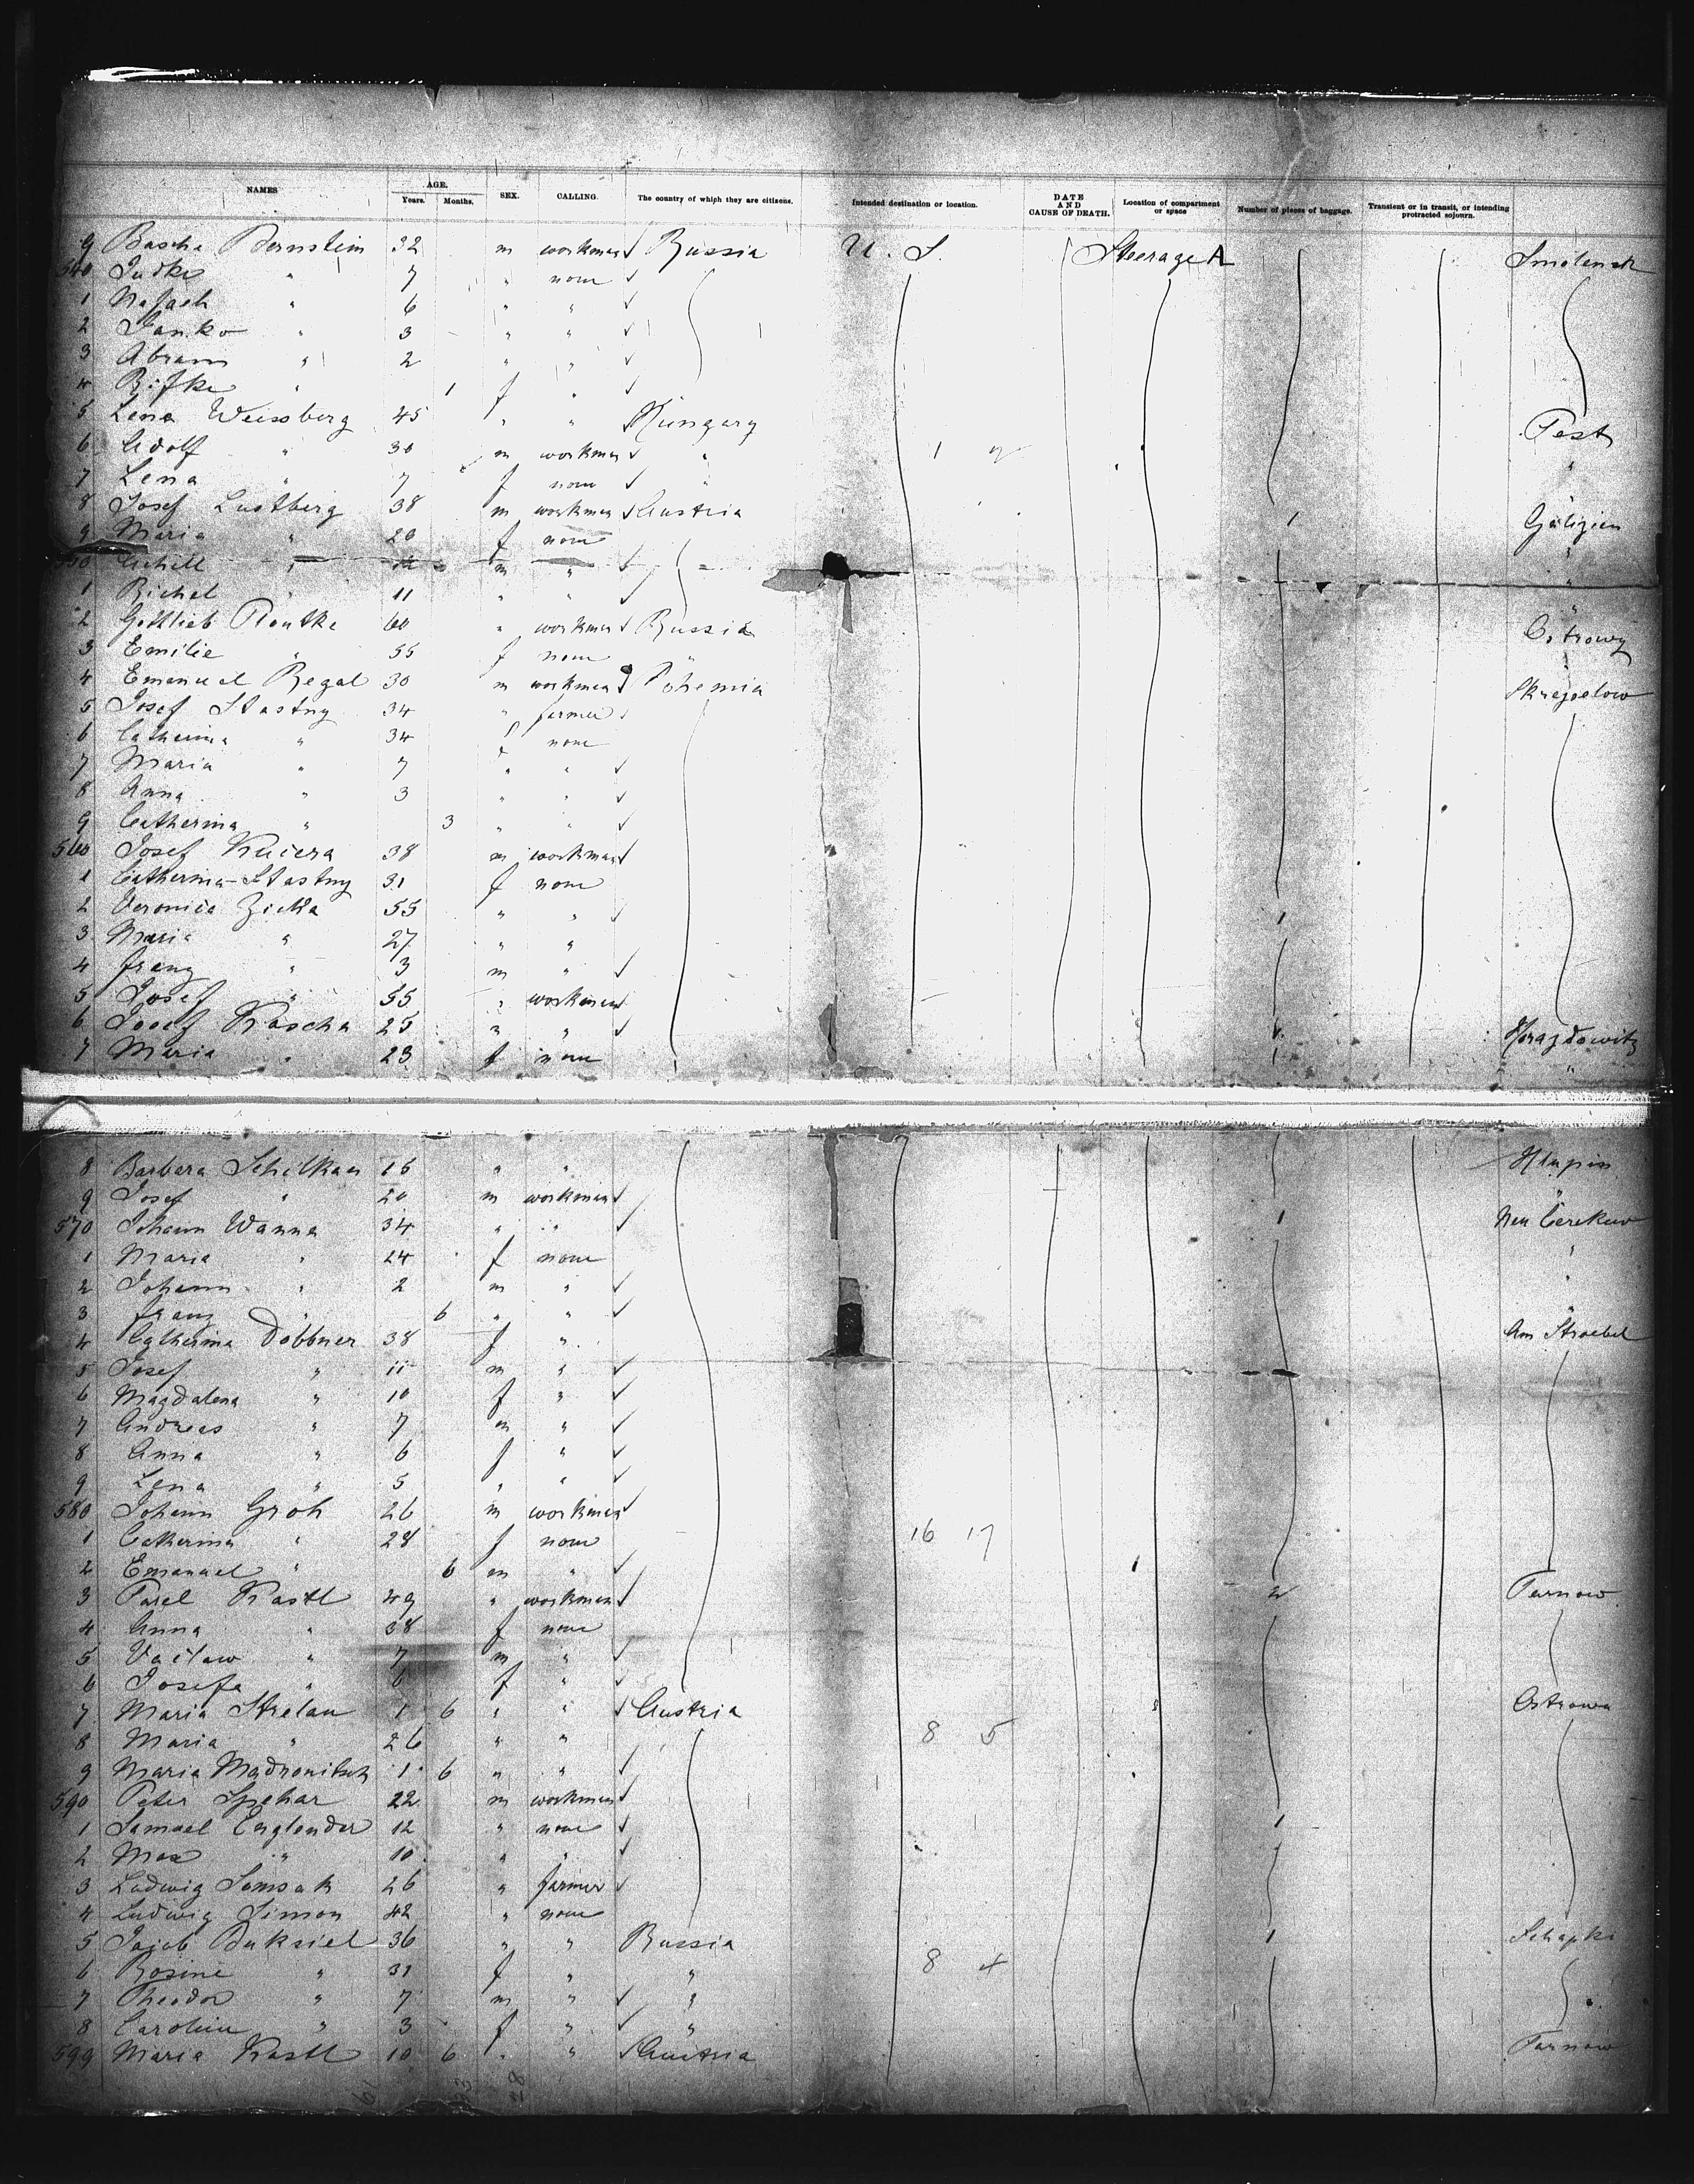 NAMES AGE. Years. Months. SEX. CALLING. The country of which they are citizens. Intended destination or location. DATE AND CAUSE OF DEATH. Location of compartment or space Number of pieces of baggage. Transient or in transit, or intending protracted sojourn.
9 Bascha Bernstein 32 m workman Russia U. S. Steerage A Smolensk
540 Judke " 7 " none
1 " 6 " "
2 Janko " 3 " "
3 Abram " 2 " "
4 Rifke " 1 f "
5 Lena Weissberg 45 " " Hungary Pest
6 Adolf " 30 m workman " "
7 Lena " 7 f none "
8 Josef Lustberg 38 m workman Austria 1 Galizien
9 Maria " 20 f none "
550 " m " "
1 Richel " 11 " " "
2 Gottlieb Plontke 60 " workman Russia
3 Emilie " 55 f none "
4 Emanuel Regal 30 m workman Bohemia
5 Josef Stastny 34 " farmer
6 Catherina " 34 f none
7 Maria " 7 " "
8 Anna " 3 " "
9 Catherina " 3 " "
560 Josef Kucera 38 m workman
1 Catherina Stastny 31 f none
2 Veronica Zicka 55 " " 1
3 Maria " 27 " "
4 Franz " 3 m "
5 Josef " 55 " workman
6 Josef Kascha 25 " " Horazdowitz
7 Maria " 23 f none 1 "
8 Barbara Schilkan 16 " "
9 Josef " 20 m workman "
570 Johann Wanna 34 " " 1 Neu Cerekuv
1 Maria " 24 f none "
2 Johann " 2 m " "
3 Franz " 6 " " "
4 Catherina Dobbner 38 f " Am Stroebel
5 Josef " 11 m "
6 Magdalena " 10 f "
7 Andreas " 7 m "
8 Anna " 6 f "
9 Lena " 5 " "
580 Johann Groh 26 m workman
1 Catherina " 28 f none 16 17
2 Emanuel " 6 m "
3 Pavel Kastl 49 " workman 2 Tarnow
4 Anna " 38 f none
5 Vaclaw " 7 m "
6 Josefa " 6 f "
7 Maria Strelau 1 6 " " Austria Ostrowa
8 Maria " 26 " " 8 5
9 Maria Madronitsch 1 6 " "
590 Peter Spehar 22 m workman
1 Samuel Englender 12 " none 1
2 Max " 10 " "
3 Ludwig Somsak 26 " farmer
4 Ludwig Simon 42 " none
5 Jajob Buksiel 36 " " Russia 1 Schapki
6 Rosine " 31 f " " 8 4
7 Theodor " 7 m " "
8 Carolin " 3 f " "
599 Maria Kastl 10 6 " " Austria Tarnow